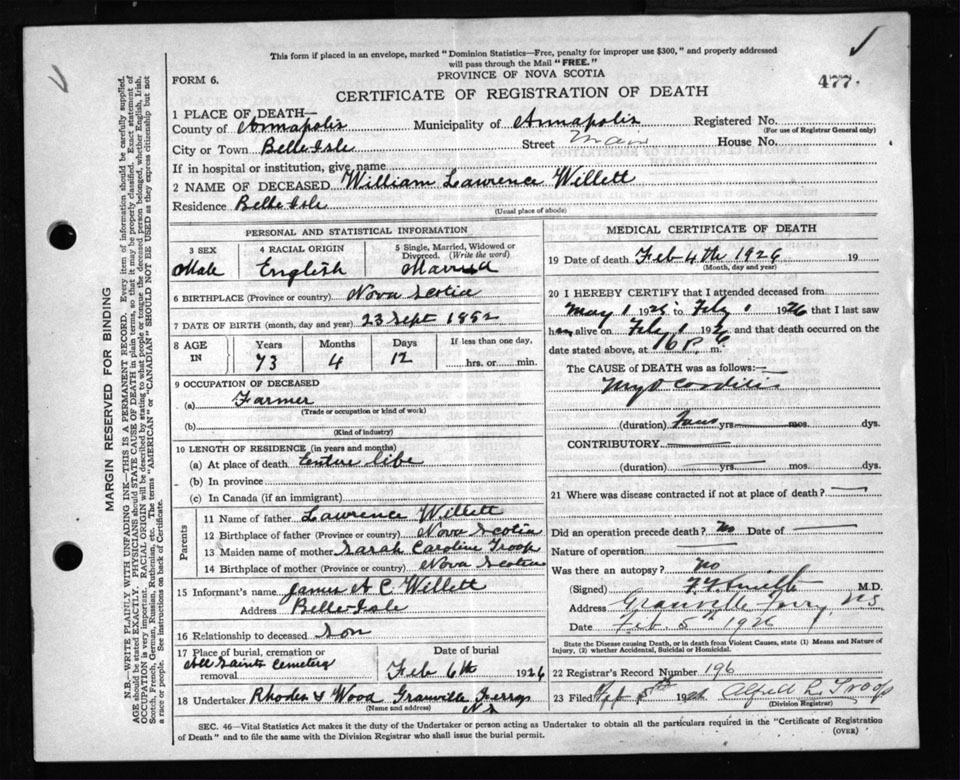 This form if placed in an envelope, marked "Dominion Statistics—Free, penalty for improper use $300," and properly addressed
will pass through the Mail "FREE."
FORM 6.
PROVINCE OF NOVA SCOTIA
477.
CERTIFICATE OF REGISTRATION OF DEATH
1 PLACE OF DEATH—
County of Annapolis Municipality of Annapolis Registered No.
(For use of Registrar General only)
City or Town Belle-Isle Street Main House No.
If in hospital or institution, give name
2 NAME OF DECEASED William Lawrence Willett
Residence Belle Isle
(Usual place of abode)
PERSONAL AND STATISTICAL INFORMATION
3 SEX 4 RACIAL ORIGIN 5 Single, Married, Widowed or
Divorced. (Write the word)
Male English Married
6 BIRTHPLACE (Province or country) Nova Scotia
7 DATE OF BIRTH (month, day and year) 23 Sept 1852
8 AGE
IN
Years Months Days If less than one day,
73 4 12 hrs. or min.
9 OCCUPATION OF DECEASED
(a) Farmer
(Trade or occupation or kind of work)
(b)
(Kind of industry)
10 LENGTH OF RESIDENCE (in years and months)
(a) At place of death Entire life
(b) In province
(c) In Canada (if an immigrant)
Parents
11 Name of father Lawrence Willett
12 Birthplace of father (Province or country) Nova Scotia
13 Maiden name of mother Sarah Caroline Troop
14 Birthplace of mother (Province or country) Nova Scotia
15 Informant's name James A C Willett
Address Belle-Isle
16 Relationship to deceased Son
17 Place of burial, cremation or
removal All Saints Cemetery
Date of burial
Feb 6th 1926
18 Undertaker Rhodes & Wood Granville Ferry
(Name and address) NS
MEDICAL CERTIFICATE OF DEATH
19 Date of death Feb 4th 1926 19
(Month, day and year)
20 I HEREBY CERTIFY that I attended deceased from
May 1 1925 to Feby 1 1926 that I last saw
h alive on Feby 1 1926 and that death occurred on the
date stated above, at m.
The CAUSE of DEATH was as follows:—
Myocarditis
(duration) yrs. mos. dys.
CONTRIBUTORY
(duration) yrs. mos. dys.
21 Where was disease contracted if not at place of death?
Did an operation precede death? No Date of
Nature of operation
Was there an autopsy? No
(Signed) M.D.
Address Granville Ferry NS
Date Feb 5th 1926
State the Disease causing Death, or in death from Violent Causes, state (1) Means and Nature of
Injury, (2) whether Accidental, Suicidal or Homicidal.
22 Registrar's Record Number 196
23 Filed 1926 Alfred L. Troop
(Division Registrar)
SEC. 46—Vital Statistics Act makes it the duty of the Undertaker or person acting as Undertaker to obtain all the particulars required in the "Certificate of Registration
of Death" and to file the same with the Division Registrar who shall issue the burial permit.
(OVER)
MARGIN RESERVED FOR BINDING
N.B.—WRITE PLAINLY WITH UNFADING INK—THIS IS A PERMANENT RECORD. Every item of information should be carefully supplied.
AGE should be stated EXACTLY. PHYSICIANS should STATE CAUSE OF DEATH in plain terms, so that it may be properly classified. Exact statement of
OCCUPATION is very important. RACIAL ORIGIN will be described by stating to what people or tongue the deceased person belonged, whether English, Irish,
Scotch, French, German, Russian, Ruthenian, etc. The terms "AMERICAN" or "CANADIAN" SHOULD NOT BE USED as they express citizenship but not
a race or people. See instructions on back of Certificate.